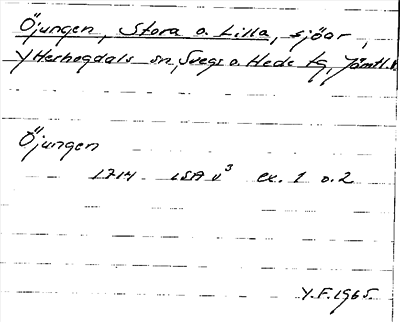 Öjungen, Stora o. Lilla, sjöar,
YHerhogdals sn, Svegs o. Hede tg, Jämtl.
Öjungen
1714 LSA v³ ex. 1 o. 2
Y.F. 1965.